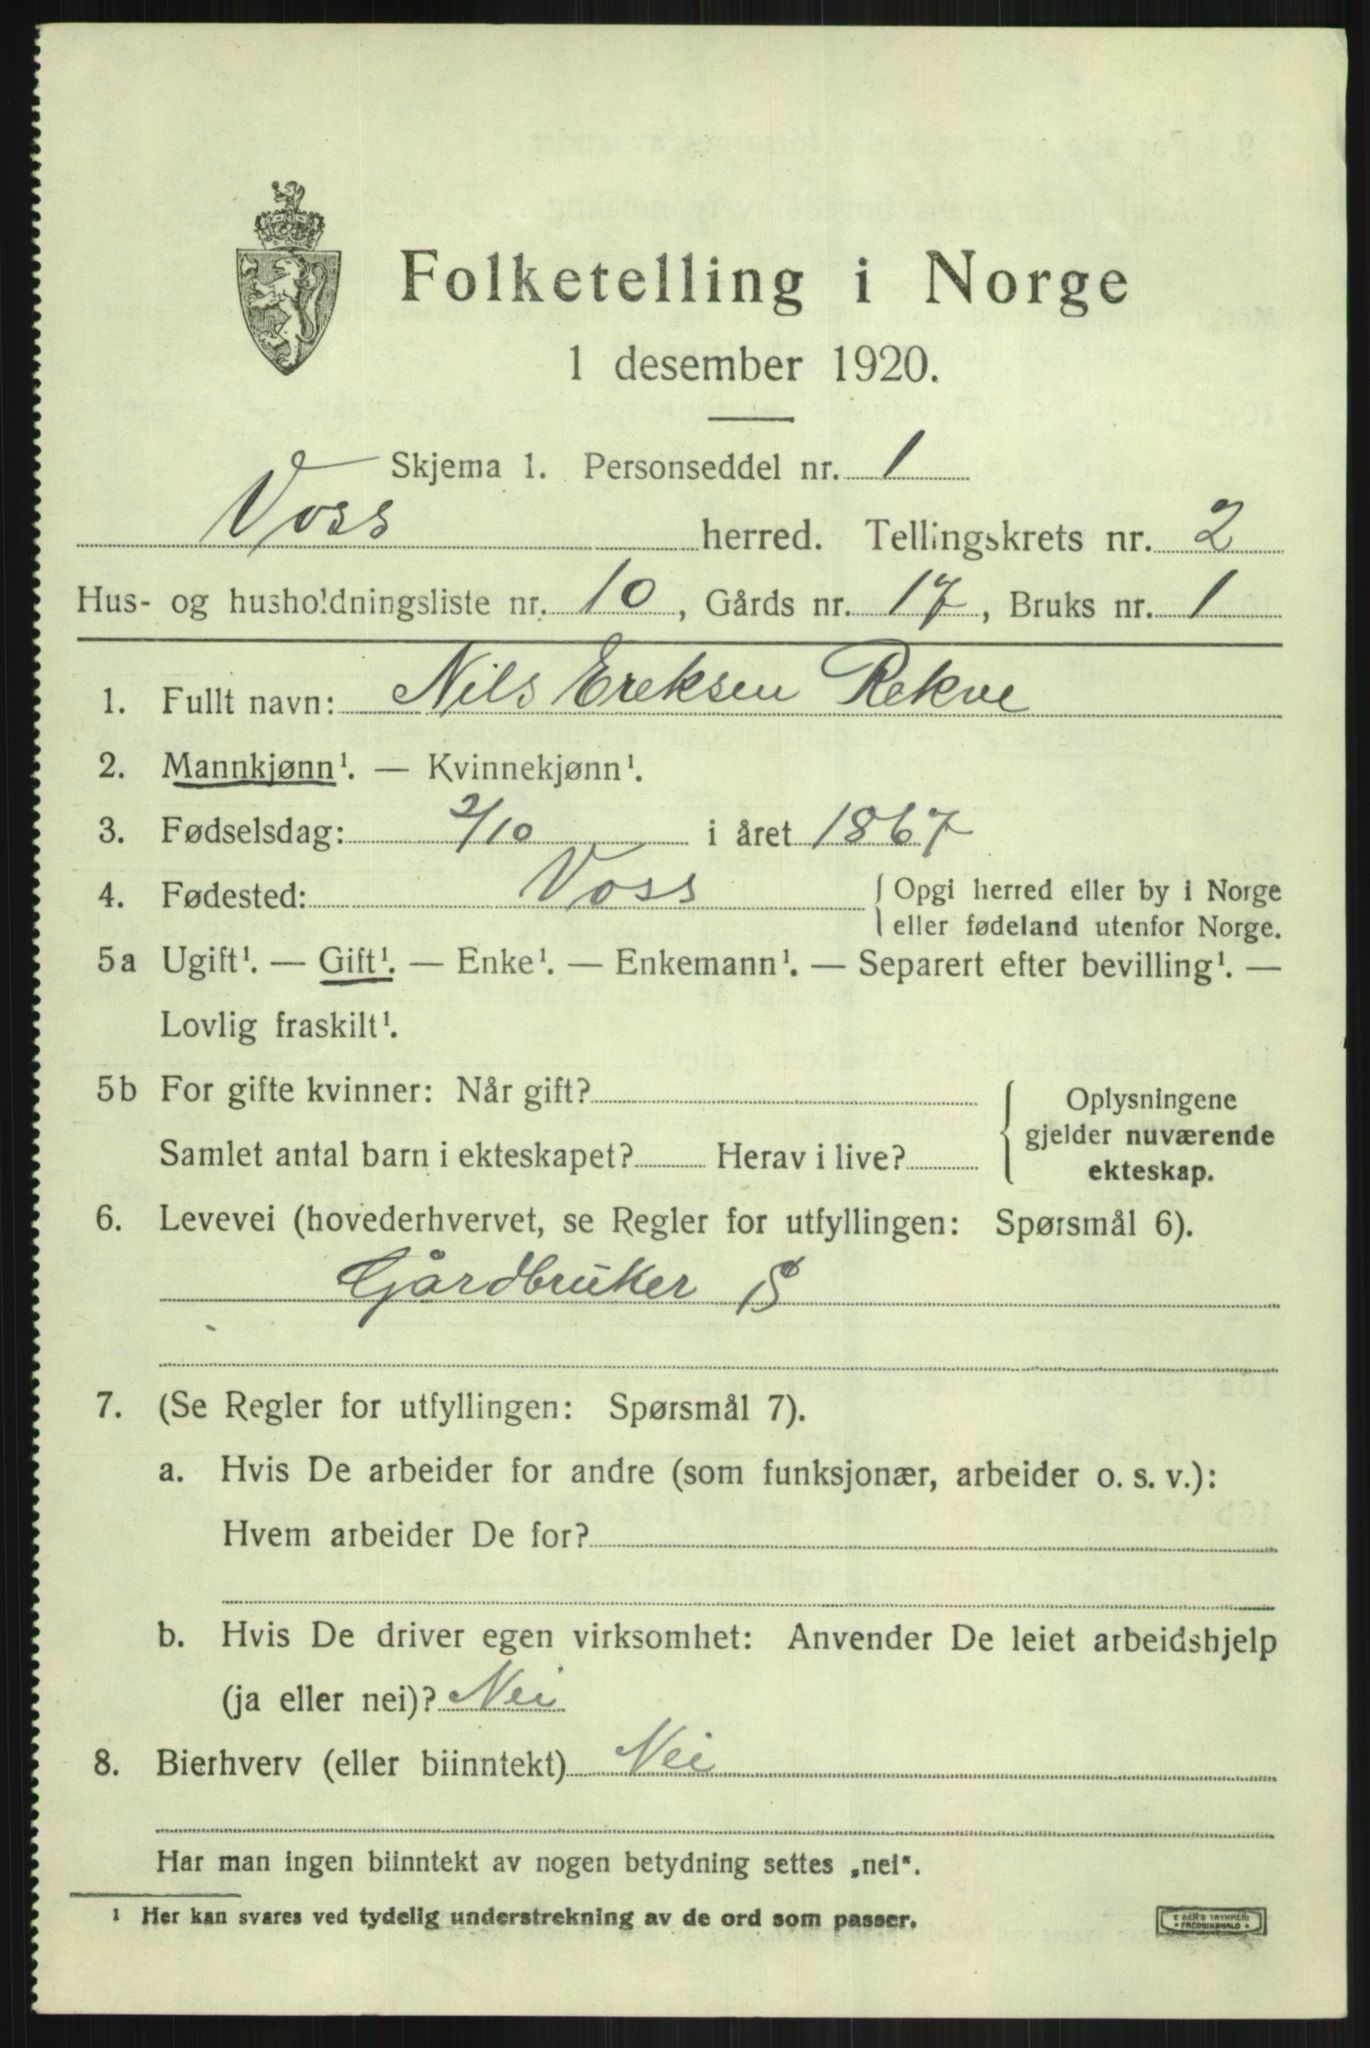 Folketelling i Norge
1 desember 1920.
Skjema 1. Personseddel nr. 1
Voss herred. Tellingskrets nr. 2
Hus- og husholdningsliste nr. 10, Gårds nr. 17, Bruks nr. 1
1. Fullt navn: Nils Ereksen Rekve
2. Mannkjønn¹. — Kvinnekjønn¹.
3. Fødselsdag: 2/10 i året 1867
4. Fødested: Voss { Opgi herred eller by i Norge
eller fødeland utenfor Norge.
5a Ugift¹. — Gift¹. — Enke¹. — Enkemann¹. — Separert efter bevilling¹. —
Lovlig fraskilt¹.
5b For gifte kvinner: Når gift?
Samlet antal barn i ekteskapet? Herav i live?
Oplysningene
gjelder nuværende
ekteskap.
6. Levevei (hovederhvervet, se Regler for utfyllingen: Spørsmål 6).
Gårdbruker S
7. (Se Regler for utfyllingen: Spørsmål 7).
a. Hvis De arbeider for andre (som funksjonær, arbeider o. s. v.):
Hvem arbeider De for?
b. Hvis De driver egen virksomhet: Anvender De leiet arbeidshjelp
(ja eller nei)? Nei
8. Bierhverv (eller biinntekt) Nei
Har man ingen biinntekt av nogen betydning settes „nei“.
¹ Her kan svares ved tydelig understrekning av de ord som passer.